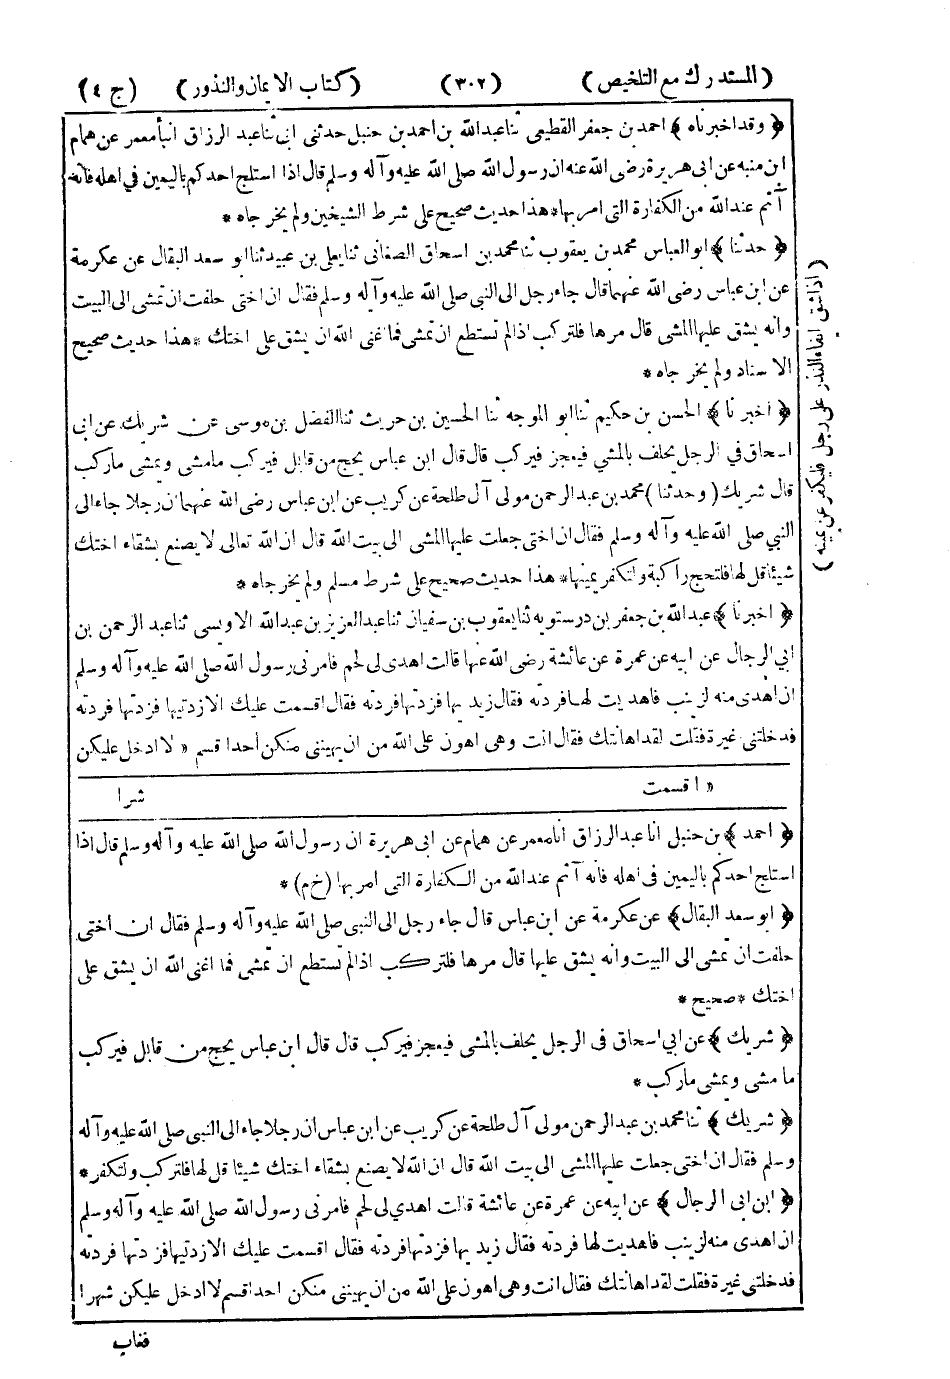 (المستدرك مع التلخيص) (٣٠٢) (كتاب الايمان والنذور) (ج ٤)
﴿ وقد اخبرناه ﴾ احمد بن جعفر القطيعى ثنا عبدالله بن احمد بن حنبل حدثنى ابى ثنا عبد الرزاق انبأ معمر عن همام
ابن منبه عن ابى هريرة رضى الله عنه ان رسول الله صلى الله عليه وآله وسلم قال اذا استلج احدكم باليمين في اهله فانه
آثم عند الله من الكفارة التى امر بها * هذا حديث صحيح على شرط الشيخين ولم يخرجاه *
﴿ حدثنا ﴾ ابو العباس محمد بن يعقوب ثنا محمد بن اسحاق الصغانى ثنا يعلى بن عبيد ثنا ابو سعد البقال عن عكرمة
عن ابن عباس رضى الله عنهما قال جاء رجل الى النبي صلى الله عليه وآله وسلم فقال ان اختى حلفت ان تمشى الى البيت
وانه يشق عليها المشى قال مرها فلتركب اذا لم تستطع ان تمشى فما غنى الله ان يشق على اختك * هذا حديث صحيح
الاسناد ولم يخرجاه *
﴿ اخبرنا ﴾ الحسن بن حكيم ثنا ابو الموجه ثنا الحسين بن حريث ثنا الفضل بن موسى عن شريك عن ابى
اسحاق في الرجل يحلف بالمشي فيعجز فيركب قال قال ابن عباس يحج من قابل فيركب ما مشى ويمشى ما ركب
قال شريك (وحدثنا) محمد بن عبد الرحمن مولى آل طلحة عن كريب عن ابن عباس رضى الله عنهما ان رجلا جاء الى
النبي صلى الله عليه وآله وسلم فقال ان اختى جعلت عليها المشى الى بيت الله قال ان الله تعالى لا يصنع بشقاء اختك
شيئا قل لها فلتحج راكبة ولتكفر يمينها * هذا حديث صحيح على شرط مسلم ولم يخرجاه *
﴿ اخبرنا ﴾ عبدالله بن جعفر بن درستويه ثنا يعقوب بن سفيان ثنا عبد العزيز بن عبدالله الاويسى ثنا عبد الرحمن بن
ابي الرجال عن ابيه عن عمرة عن عائشة رضى الله عنها قالت اهدى لى لحم فامرنى رسول الله صلى الله عليه وآله وسلم
ان اهدى منه لزينب فاهديت لها فردته فقال زيد بها فزدتها فردته فقال اقسمت عليك الا زدتيها فزدتها فردته
فدخلتنى غيرة فقلت لقد اهانتك فقال انت وهى اهون على الله من ان يهيننى منكن أحدا قسم « لا ادخل عليكن
« اقسمت
شرا
﴿ احمد ﴾ بن حنبل انا عبد الرزاق انا معمر عن همام عن ابى هريرة ان رسول الله صلى الله عليه وآله وسلم قال اذا
استلج احدكم باليمين فى اهله فانه آثم عند الله من الكفارة التى امر بها (خ م) *
﴿ ابو سعد البقال ﴾ عن عكرمة عن ابن عباس قال جاء رجل الى النبي صلى الله عليه وآله وسلم فقال ان اختى
حلفت ان تمشى الى البيت وانه يشق عليها قال مرها فلتركب اذا لم تستطع ان تمشى فما اغنى الله ان يشق على
اختك * صحيح *
﴿ شريك ﴾ عن ابي اسحاق فى الرجل يحلف بالمشى فيعجز فيركب قال قال ابن عباس يحج من قابل فيركب
ما مشى ويمشى ما ركب *
﴿ شريك ﴾ ثنا محمد بن عبد الرحمن مولى آل طلحة عن كريب عن ابن عباس ان رجلا جاء الى النبي صلى الله عليه وآله
وسلم فقال ان اختى جعلت عليها المشى الى بيت الله قال ان الله لا يصنع بشقاء اختك شيئا قل لها فلتركب ولتكفر *
﴿ ابن ابى الرجال ﴾ عن ابيه عن عمرة عن عائشة قالت اهدي لى لحم فامرنى رسول الله صلى الله عليه وآله وسلم
ان اهدى منه لزينب فاهديت لها فردته فقال زيد بها فزدتها فردته فقال اقسمت عليك الا زدتيها فزدتها فردته
فدخلتنى غيرة فقلت لقد اهانتك فقال انت وهى اهون على الله من ان يهيننى منكن احدا قسم لا ادخل عليكن شهرا
فغاب
(اذا شق ايفاء النذر على رجل فليكفر عن يمينه)